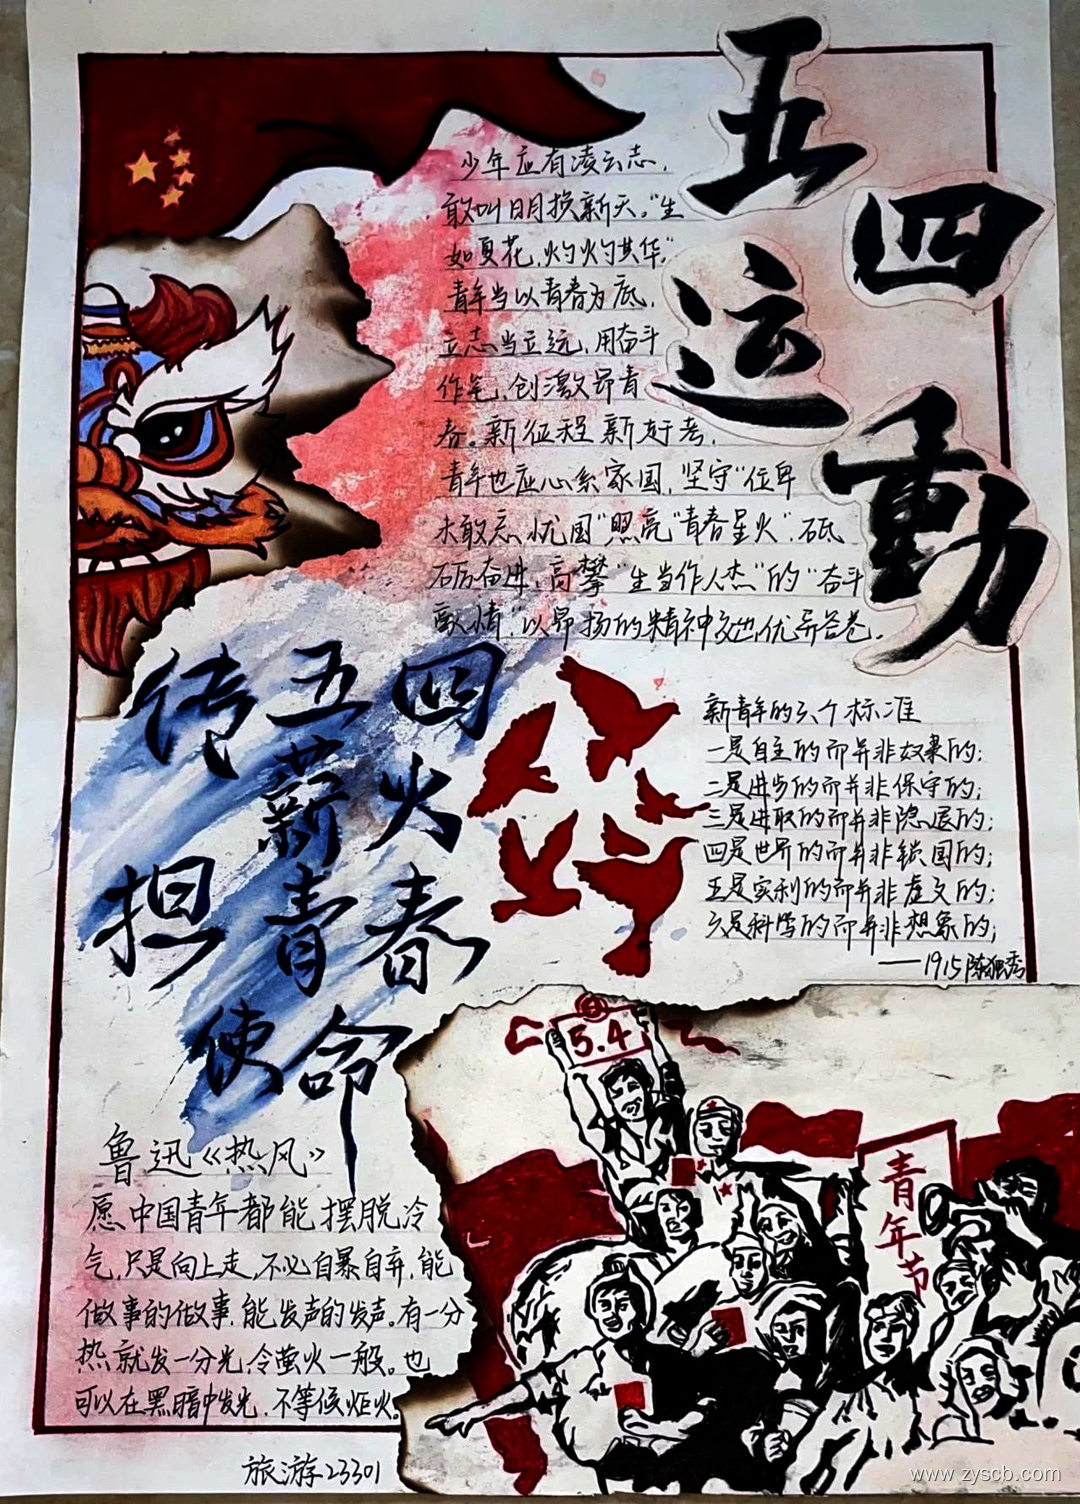 五四运動
少年应有凌云志，
敢叫日月换新天。“生
如夏花，灼灼其华”
青年当以青春为底，
立志当立远，用奋斗
作笔，创激昂青
春。新征程新赶考，
青年也应心系家国，坚守“位卑
未敢忘忧国”照亮“青春星火”．砥
砺奋进，高攀“生当作人杰”的“奋斗
豪情”，以昂扬的精神交出优异答卷。
传五四
薪火
担青春
使命
新青年的六个标准
一是自主的而并非奴隶的；
二是进步的而并非保守的；
三是进取的而并非隐退的；
四是世界的而并非锁国的；
五是实利的而并非虚文的；
六是科学的而并非想象的；
——1915陈独秀
鲁迅《热风》
愿中国青年都能摆脱冷
气，只是向上走，不必自暴自弃，能
做事的做事，能发声的发声。有一分
热就发一分光，令萤火一般。也
可以在黑暗中发光．不等候炬火。
5.4
青年节
旅游23301
www.zyscb.com